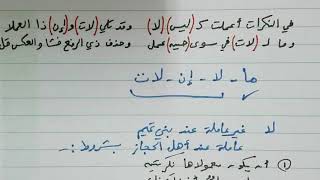 في النكرات أعملت كـ (ليس) (لا) وقد تلي (لات) و (إن) ذا العملا
وما لـ (لات) في سوى (حين) عمل وحذف ذي الرفع فشا والعكس قل
ما - لا - إن - لات
لا غير عاملة عند بني تميم
عاملة عند أهل الحجاز بشروط :-
① أن يكون معمولاها نكرتين